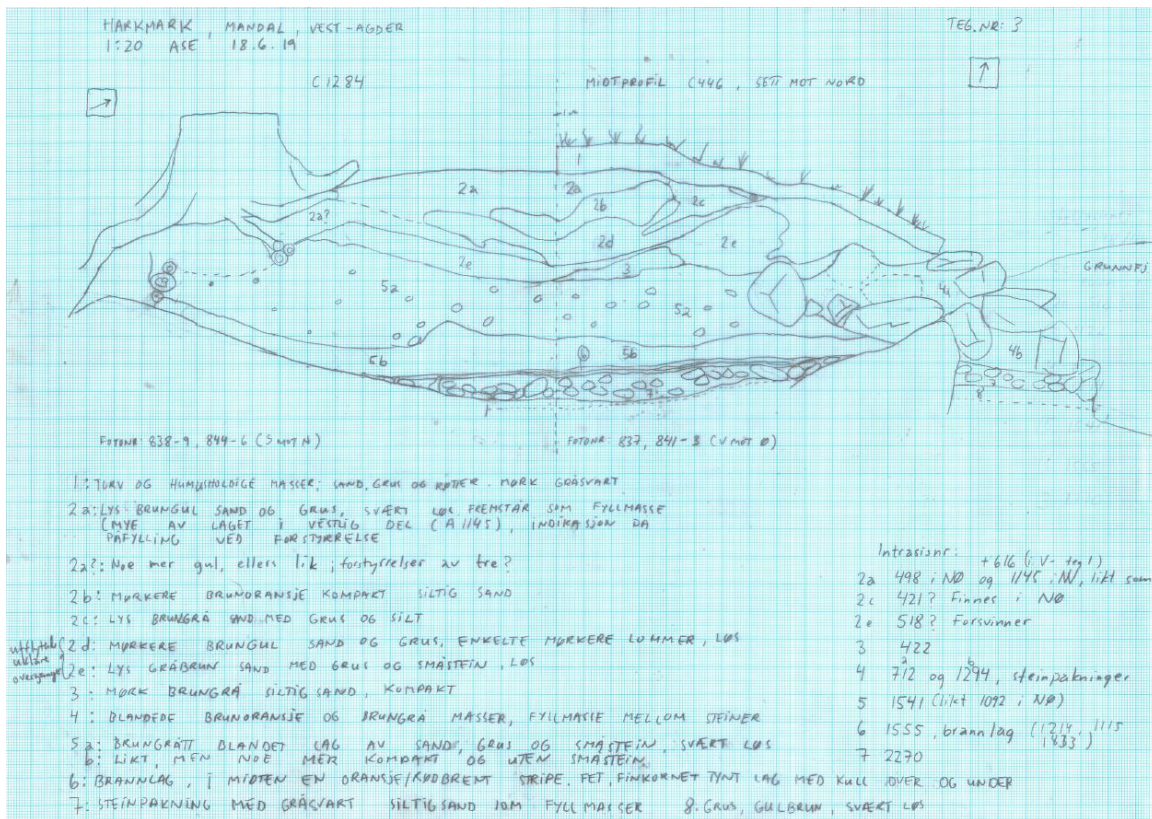 HARKMARK, MANDAL, VEST-AGDER
TEG.NR: 3
1:20 ASE 18.6.19
C1284
MIDTPROFIL C446, SETT MOT NORD
1
2a
2a
2b
2c
2a?
2d
2e
2e
3
GRUNNFJ
5a
5a
4a
5b
6
5b
4b
7
7
8
FOTONR: 838-9, 844-6 (S MOT N)
FOTONR: 837, 841-3 (V MOT Ø)
1: TORV OG HUMUSHOLDIGE MASSER; SAND, GRUS OG RØTTER. MØRK GRÅSVART
2a: LYS BRUNGUL SAND OG GRUS, SVÆRT LØS FREMSTÅR SOM FYLLMASSE
(MYE AV LAGET I VESTLIG DEL (A1145), INDIKASJON DA
PÅFYLLING VED FORSTYRRELSE
2a?: Noe mer gul, ellers lik; forstyrrelser av tre?
2b: MØRKERE BRUNORANSJE KOMPAKT SILTIG SAND
2c: LYS BRUNGRÅ SAND MED GRUS OG SILT
2d: MØRKERE BRUNGUL SAND OG GRUS, ENKELTE MØRKERE LOMMER, LØS
uklare
overganger
2e: LYS GRÅBRUN SAND MED GRUS OG SMÅSTEIN, LØS
3: MØRK BRUNGRÅ SILTIG SAND, KOMPAKT
4: BLANDEDE BRUNORANSJE OG BRUNGRÅ MASSER, FYLLMASSE MELLOM STEINER
5a: BRUNGRÅTT BLANDET LAG AV SAND, GRUS OG SMÅSTEIN, SVÆRT LØS
b: LIKT, MEN NOE MER KOMPAKT OG UTEN SMÅSTEIN
6: BRANNLAG, I MIDTEN EN ORANSJE/RØDBRENT STRIPE. FET, FINKORNET TYNT LAG MED KULL OVER OG UNDER
7: STEINPAKNING MED GRÅSVART SILTIG SAND SOM FYLLMASSER 8. GRUS, GULBRUN, SVÆRT LØS
Intrasisnr:
+616 (i V- teg 1)
2a 498 i NØ og 1145 i NV, likt som
2c 421? Finnes i NØ
2e 518? Forsvinner
3 422
4 712 a og 1294 b, steinpakninger
5 1541 (likt 1092 i NØ)
6 1555, brannlag (1214, 1115
1433)
7 2270